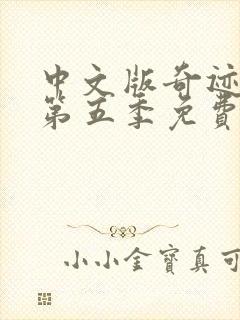 中文版奇迹
第五季免費
小小金寶真可